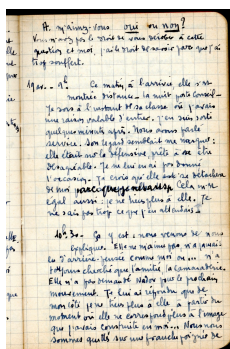 A. m'aimez-vous oui ou non ?
Vous n'avez pas le droit de vous dérober à cette
question et moi, j'ai le droit de savoir parce que j'ai
trop souffert.
Ce matin, à l'arrivée elle s'est
montrée distante. La nuit porte conseil -
Je sors à l'instant de sa classe où j'avais
une raison valable d'entrer. J'en suis sorti
quelques minutes après. Nous avons parlé
service. Son regard semblait me narguer :
elle était sur la défensive, prête à se être
désagréable. Je ne lui en ai pas donné
l'occasion. Je crois qu'elle est se détachée
de moi parce que je
égal aussi : je ne tiens plus à elle. Je
ne sais pas trop ce que j'en attendais !
10h 30 - Ça y est : nous venons de nous
expliquer. Elle ne m'aime pas n'a jamais
eu d'arrière-pensée comme moi ou ... n'a
toujours cherché que l'amitié, la camaraderie.
Elle n'a pas demandé pour le prochain
mouvement. Je lui ai répondu que de
mon côté je ne tiens plus à elle à partir du
moment où elle ne correspond plus à l'image
que j'avais construite en moi ... Nous nous
sommes quittés sur une franche poignée de